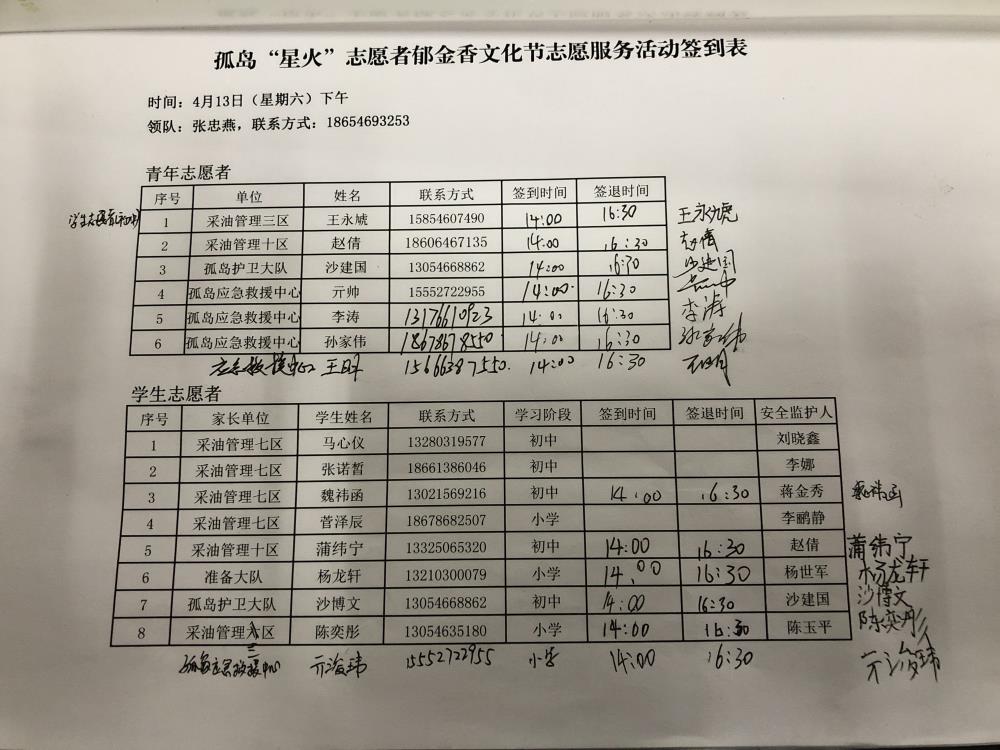 孤岛“星火”志愿者郁金香文化节志愿服务活动签到表
时间：4月13日（星期六）下午
领队：张忠燕，联系方式：18654693253
青年志愿者
序号 单位 姓名 联系方式 签到时间 签退时间
1 采油管理三区 王永虓 15854607490 14:00 16:30 王永虓
2 采油管理十区 赵倩 18606467135 14:00 16:30 赵倩
3 孤岛护卫大队 沙建国 13054668862 14:00 16:30 沙建国
4 孤岛应急救援中心 亓帅 15552722955 14:00 16:30
5 孤岛应急救援中心 李涛 13176610923 14:00 16:30 李涛
6 孤岛应急救援中心 孙家伟 18678678550 14:00 16:30
应急救援中心 王明 15666387550 14:00 16:30 王明
学生志愿者
序号 家长单位 学生姓名 联系方式 学习阶段 签到时间 签退时间 安全监护人
1 采油管理七区 马心仪 13280319577 初中 刘晓鑫
2 采油管理七区 张诺皙 18661386046 初中 李娜
3 采油管理七区 魏祎函 13021569216 初中 14:00 16:30 蒋金秀 魏祎函
4 采油管理七区 菅泽辰 18678682507 小学 李鹂静
5 采油管理十区 蒲纬宁 13325065320 初中 14:00 16:30 赵倩 蒲纬宁
6 准备大队 杨龙轩 13210300079 小学 14:00 16:30 杨世军 杨龙轩
7 孤岛护卫大队 沙博文 13054668862 初中 14:00 16:30 沙建国 沙博文
8 采油管理区 陈奕彤 13054635180 小学 14:00 16:30 陈玉平 陈奕彤
应急救援中心 15552722955 小学 14:00 16:30